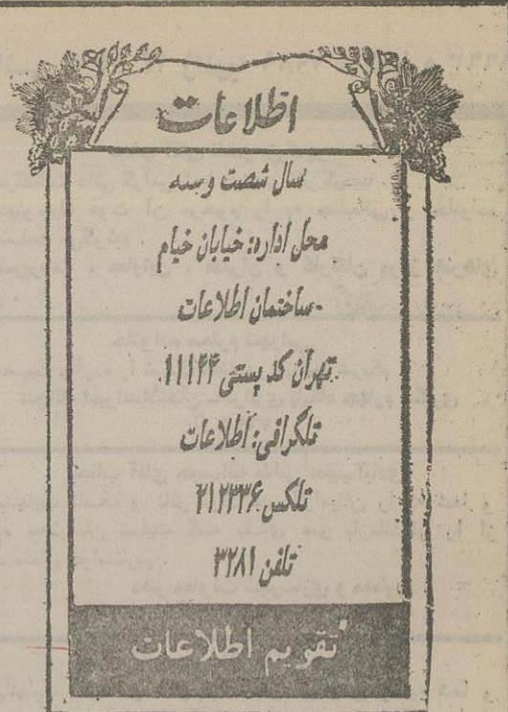 اطلاعات
سال شصت وسه
محل اداره: خیابان خیام
-ساختمان اطلاعات
تهران کد پستی ۱۱۱۴۴
تلگرافی: اطلاعات
تلکس ۲۱۲۳۳۶
تلفن ۳۲۸۱
تقویم اطلاعات